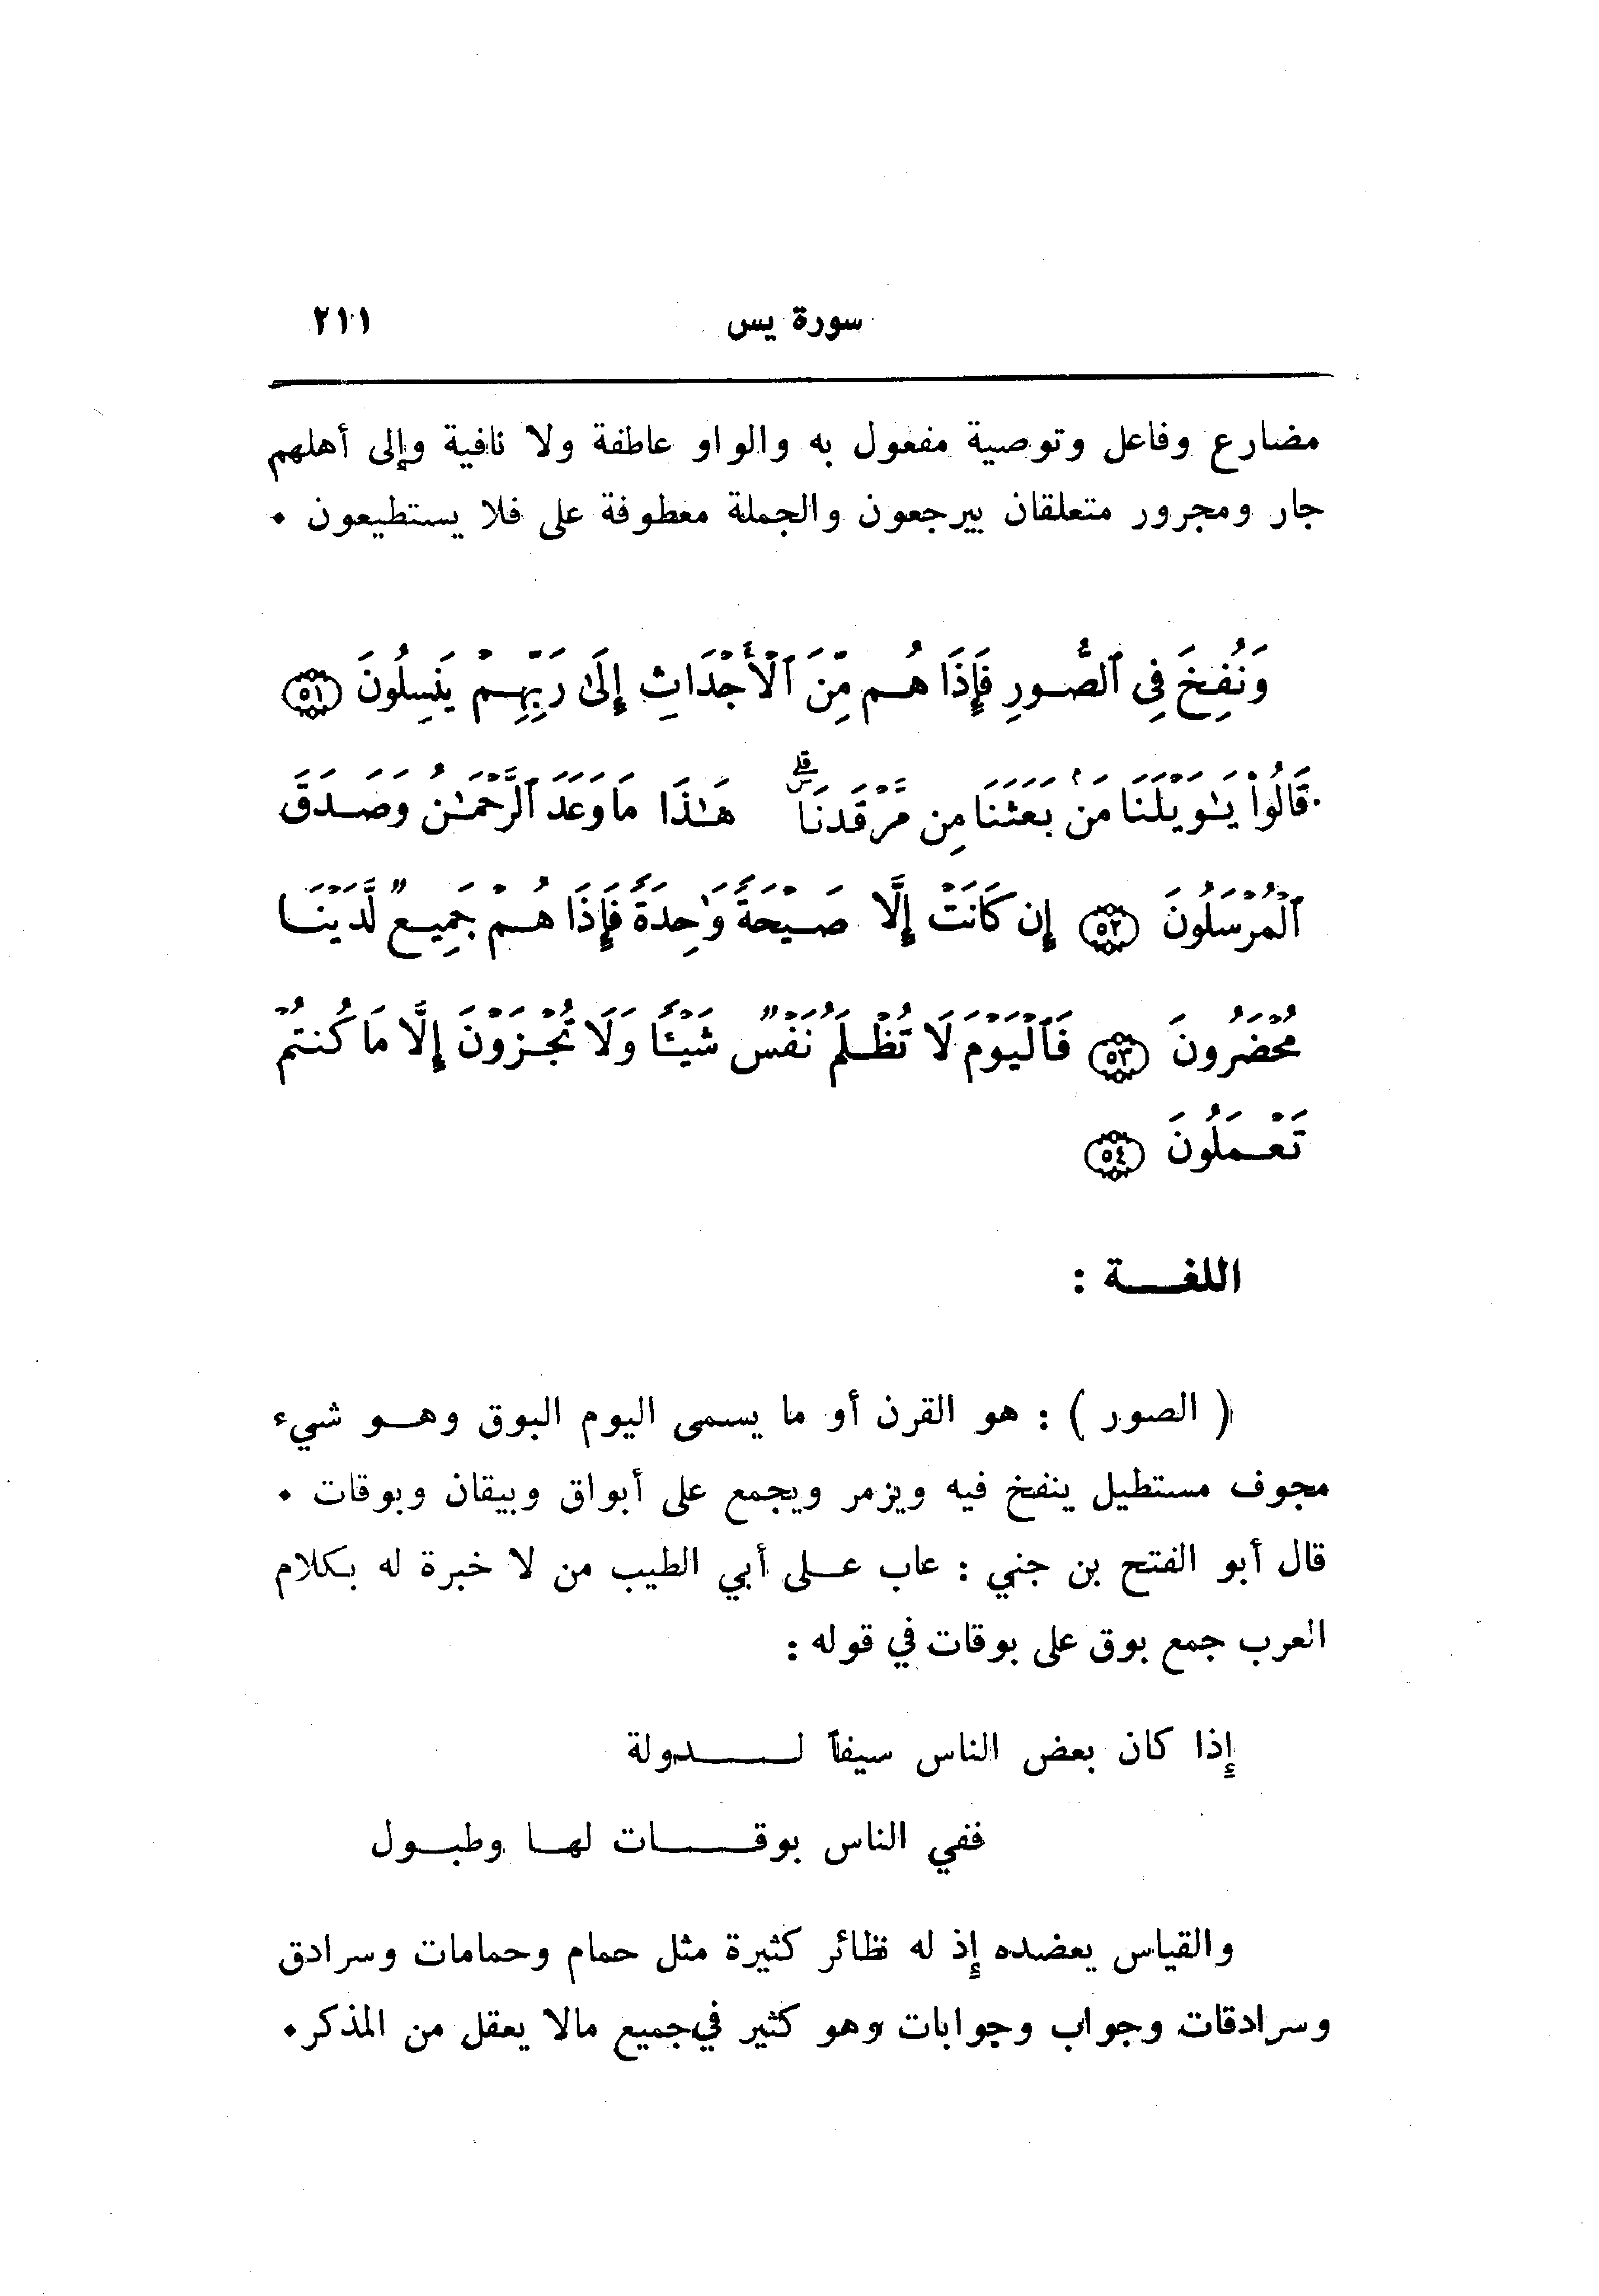 سورة يس ٢١١
مضارع وفاعل وتوصية مفعول به والواو عاطفة ولا نافية وإلى أهلهم
جار ومجرور متعلقان بيرجعون والجملة معطوفة على فلا يستطيعون ٠
وَنُفِخَ فِي ٱلصُّورِ فَإِذَا هُم مِّنَ ٱلْأَجْدَاثِ إِلَىٰ رَبِّهِمْ يَنسِلُونَ ٥١
قَالُوا۟ يَـٰوَيْلَنَا مَنۢ بَعَثَنَا مِن مَّرْقَدِنَا ۜ ۗ هَـٰذَا مَا وَعَدَ ٱلرَّحْمَـٰنُ وَصَدَقَ
ٱلْمُرْسَلُونَ ٥٢ إِن كَانَتْ إِلَّا صَيْحَةً وَٰحِدَةً فَإِذَا هُمْ جَمِيعٌ لَّدَيْنَا
مُحْضَرُونَ ٥٣ فَٱلْيَوْمَ لَا تُظْلَمُ نَفْسٌ شَيْـًٔا وَلَا تُجْزَوْنَ إِلَّا مَا كُنتُمْ
تَعْمَلُونَ ٥٤
اللغــــة :
( الصور ) : هو القرن أو ما يسمى اليوم البوق وهــو شيء
مجوف مستطيل ينفخ فيه ويزمر ويجمع على أبواق وبيقان وبوقات ٠
قال أبو الفتح بن جني : عاب عــلى أبي الطيب من لا خبرة له بكلام
العرب جمع بوق على بوقات في قوله :
إذا كان بعض الناس سيفاً لـــــدولة
ففي الناس بوقـــــات لهــا وطبــول
والقياس يعضده إذ له نظائر كثيرة مثل حمام وحمامات وسرادق
وسرادقات وجواب وجوابات وهو كثير في جميع مالا يعقل من المذكر ٠